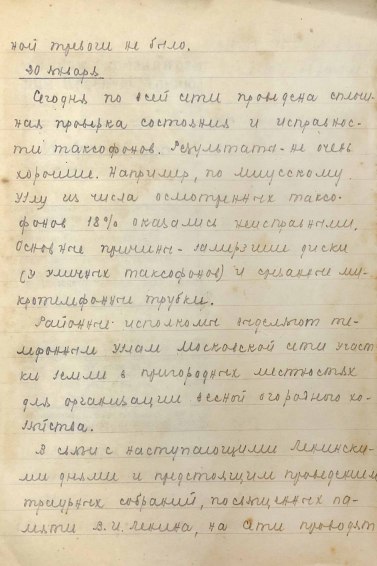 ной тревоги не было.
20 января.
Сегодня по всей сети проведена сплош-
ная проверка состояния и исправнос-
ти таксофонов. Результаты - не очень
хорошие. Например, по Миусскому
узлу из числа осмотренных таксо-
фонов 18% оказались неисправными.
Основные причины - замерзшие диски
(у уличных таксофонов) и срезанные ми-
кротелефонные трубки.
Районные исполкомы выделяют те-
лефонным узлам Московской сети участ-
ки земли в пригородных местностях
для организации весной огородного хо-
зяйства.
В связи с наступающими Ленински-
ми днями и предстоящим проведением
траурных собраний, посвященных па-
мяти В.И. Ленина, на сети проводят